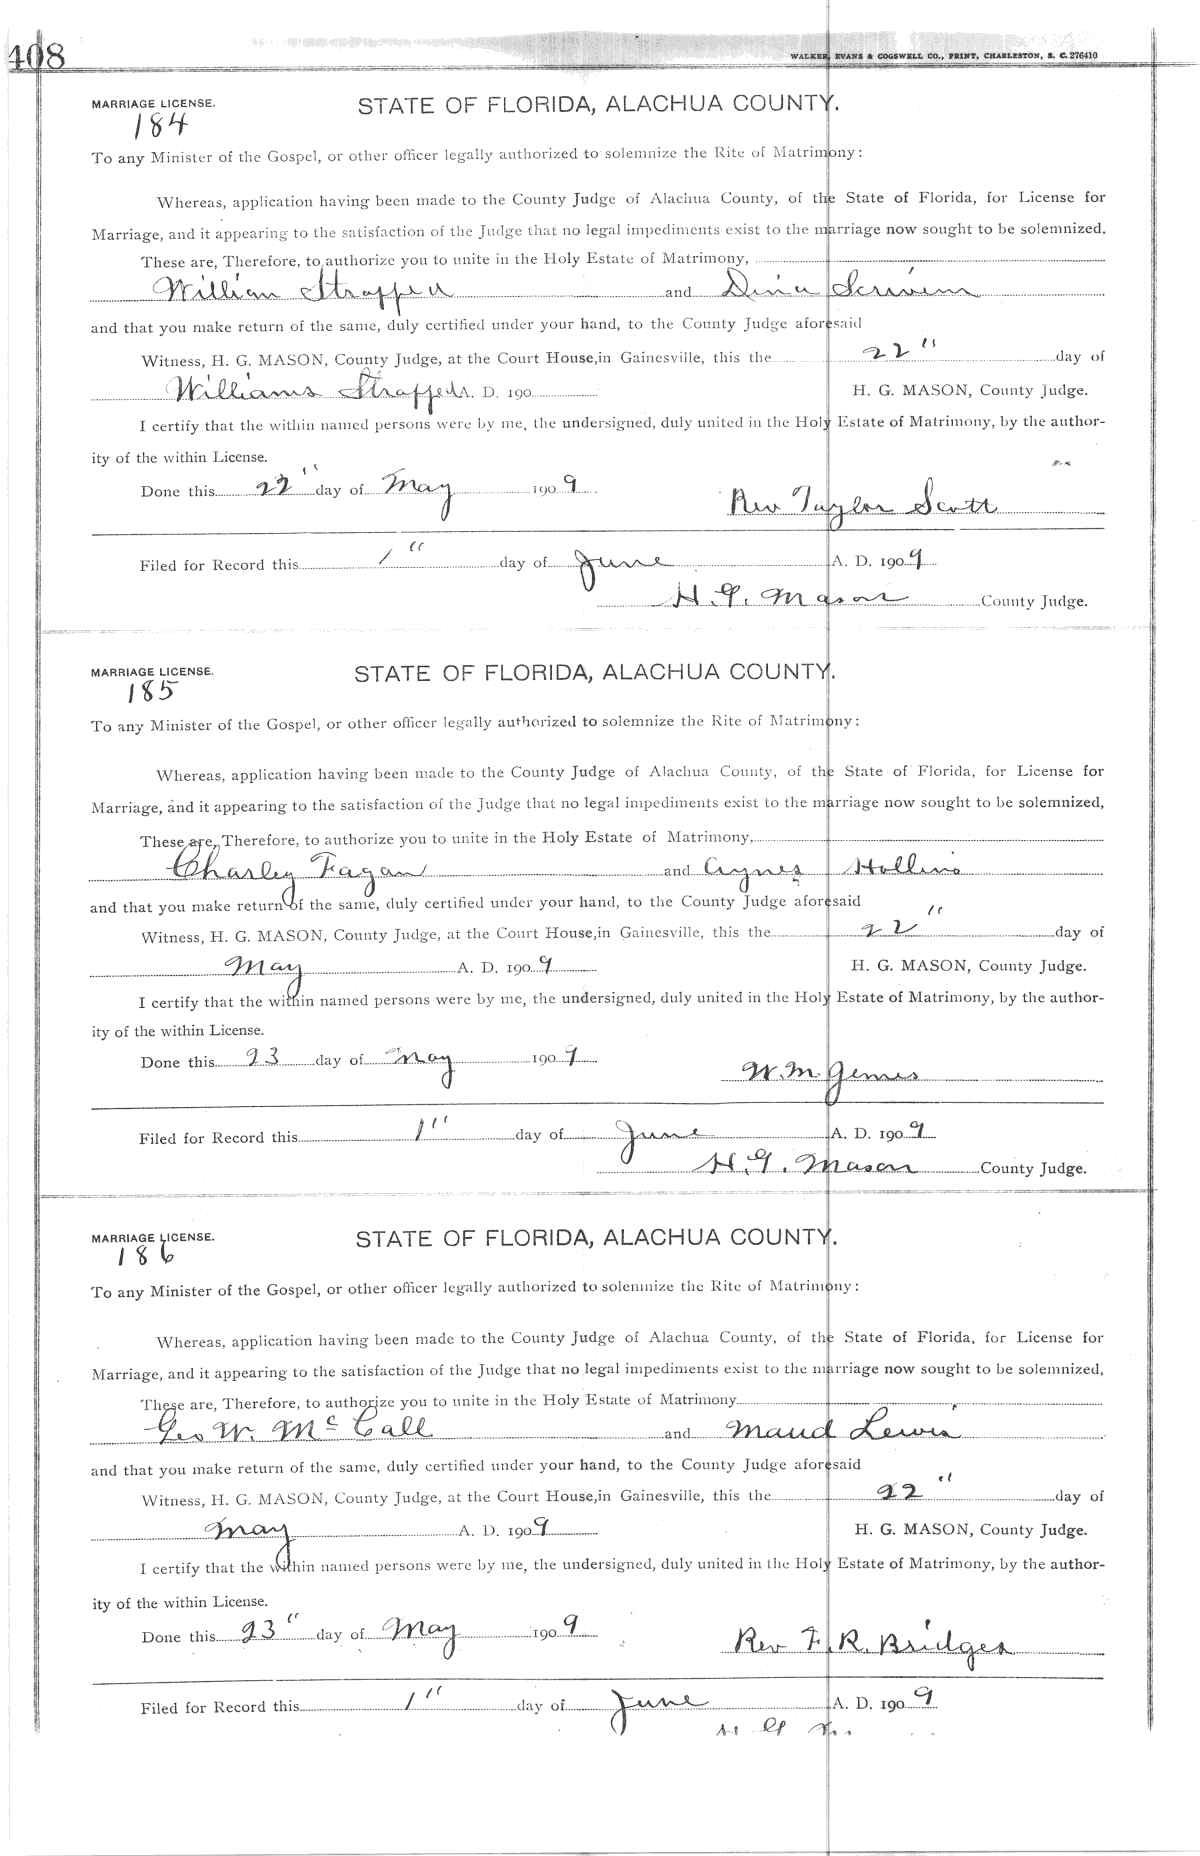 408
WALKER, EVANS & COGSWELL CO., PRINT, CHARLESTON, S. C. 276410
MARRIAGE LICENSE. STATE OF FLORIDA, ALACHUA COUNTY.
184
To any Minister of the Gospel, or other officer legally authorized to solemnize the Rite of Matrimony:
Whereas, application having been made to the County Judge of Alachua County, of the State of Florida, for License for
Marriage, and it appearing to the satisfaction of the Judge that no legal impediments exist to the marriage now sought to be solemnized,
These are, Therefore, to authorize you to unite in the Holy Estate of Matrimony,
William and Dina
and that you make return of the same, duly certified under your hand, to the County Judge aforesaid
Witness, H. G. MASON, County Judge, at the Court House, in Gainesville, this the 22" day of
Williams A. D. 190 H. G. MASON, County Judge.
I certify that the within named persons were by me, the undersigned, duly united in the Holy Estate of Matrimony, by the author-
ity of the within License.
Done this 22" day of May 1909 Rev Taylor Scott
Filed for Record this 1" day of June A. D. 1909
H. G. Mason County Judge.
MARRIAGE LICENSE. STATE OF FLORIDA, ALACHUA COUNTY.
185
To any Minister of the Gospel, or other officer legally authorized to solemnize the Rite of Matrimony:
Whereas, application having been made to the County Judge of Alachua County, of the State of Florida, for License for
Marriage, and it appearing to the satisfaction of the Judge that no legal impediments exist to the marriage now sought to be solemnized,
These are, Therefore, to authorize you to unite in the Holy Estate of Matrimony,
Charley Fagan and Agnes Hollins
and that you make return of the same, duly certified under your hand, to the County Judge aforesaid
Witness, H. G. MASON, County Judge, at the Court House, in Gainesville, this the 22" day of
May A. D. 1909 H. G. MASON, County Judge.
I certify that the within named persons were by me, the undersigned, duly united in the Holy Estate of Matrimony, by the author-
ity of the within License.
Done this 23 day of May 1909 W. M.
Filed for Record this 1" day of June A. D. 1909
H. G. Mason County Judge.
MARRIAGE LICENSE. STATE OF FLORIDA, ALACHUA COUNTY.
186
To any Minister of the Gospel, or other officer legally authorized to solemnize the Rite of Matrimony:
Whereas, application having been made to the County Judge of Alachua County, of the State of Florida, for License for
Marriage, and it appearing to the satisfaction of the Judge that no legal impediments exist to the marriage now sought to be solemnized,
These are, Therefore, to authorize you to unite in the Holy Estate of Matrimony
Geo W. McCall and Maud Lewis
and that you make return of the same, duly certified under your hand, to the County Judge aforesaid
Witness, H. G. MASON, County Judge, at the Court House, in Gainesville, this the 22" day of
May A. D. 1909 H. G. MASON, County Judge.
I certify that the within named persons were by me, the undersigned, duly united in the Holy Estate of Matrimony, by the author-
ity of the within License.
Done this 23" day of May 1909 Rev F. R. Bridges
Filed for Record this 1" day of June A. D. 1909